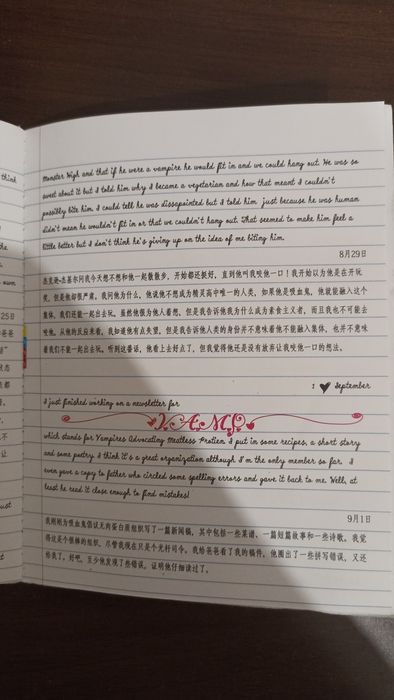 think
Monster High and that if he were a vampire he would fit in and we could hang out. He was so
sweet about it but I told him why I became a vegetarian and how that meant I couldn't
possibly bite him. I could tell he was dissapointed but I told him just because he was human
didn't mean he wouldn't fit in or that we couldn't hang out. That seemed to make him feel a
little better but I don't think he's giving up on the idea of me biting him.
8月29日
杰克逊·杰基尔问我今天想不想和他一起散散步，开始都还挺好，直到他叫我咬他一口！我开始以为他是在开玩
笑，但是他却很严肃。我问他为什么，他说他不想成为精灵高中唯一的人类，如果他是吸血鬼，他就能融入这个
集体，我们还能一起出去玩。虽然他很为他人着想，但是我告诉他我为什么成为素食主义者，而且我也不可能去
咬他。从他的反应来看，我知道他有点失望，但是我告诉他人类的身份并不意味着他不能融入集体，也并不意味
着我们不能一起出去玩。听到这番话，他看上去好点了，但我觉得他还是没有放弃让我咬他一口的想法。
1 September
I just finished working on a newsletter for
V.A.M.P.
which stands for Vampires Advocating Meatless Protien. I put in some recipes, a short story
and some poetry. I think it's a great organization although I'm the only member so far. I
even gave a copy to father who circled some spelling errors and gave it back to me. Well, at
least he read it close enough to find mistakes!
9月1日
我刚刚为吸血鬼倡议无肉蛋白质组织写了一篇新闻稿，其中包括一些菜谱、一篇短篇故事和一些诗歌。我觉
得这是个很棒的组织，尽管我现在只是个光杆司令。我给爸爸看了我的稿件，他圈出了一些拼写错误，又还
给我了。好吧，至少他发现了些错误，证明他仔细读过了。